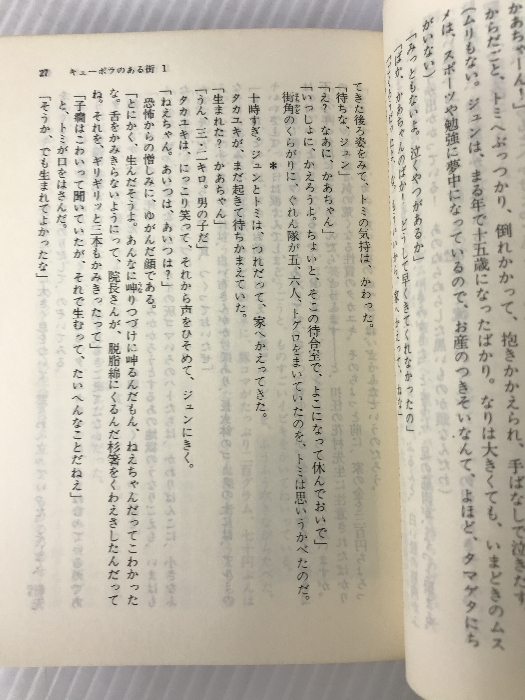 かあちゃーん！」
からだごと、トミへぶっつかり、倒れかかって、抱きかかえられ、手ばなしで泣きだす
（ムリもない。ジュンは、まる年で十五歳になったばかり。なりは大きくても、いまどきのムス
メは、スポーツや勉強に夢中になっているので、お産のつきそいなんて、よほど、タマゲタにち
がいない）
「みっともないよ。泣くやつがあるか」
「ばか、かあちゃんのばか！どうして早くきてくれなかったの」
27 キューポラのある街 1
てきた後ろ姿をみて、トミの気持は、かわった。
「待ちな、ジュン」
「え？なあに、かあちゃん」
「いっしょに、かえろうよ。ちょいと、そこの待合室で、よこになって休んでおいで」
街角のくらがりに、ぐれん隊が五、六人、トグロをまいていたのを、トミは思いうかべたのだ。
＊
十時すぎ。ジュンとトミは、つれだって、家へかえってきた。
タカユキが、まだ起きて待ちかまえていた。
「生まれた？かあちゃん」
「うん、三・二キロ。男の子だ」
タカユキは、にっこり笑って、それから声をひそめて、ジュンにきく。
「ねえちゃん。あいつは、あいつは？」
恐怖からの憎しみに、ゆがんだ顔である。
「とにかく、生んだそうよ。あんなに呻りつづけに呻るんだもん、ねえちゃんだってこわかった
な。舌をかみきらないようにって、院長さんが、脱脂綿にくるんだ杉箸をくわえさしたんだって
ね。それを、ギリギリッと三本もかみきったって」
「子癇はこわいって聞いていたが、それで生むって、たいへんなことだねえ」
と、トミが口をはさんだ。
「そうか。でも生まれてよかったな」